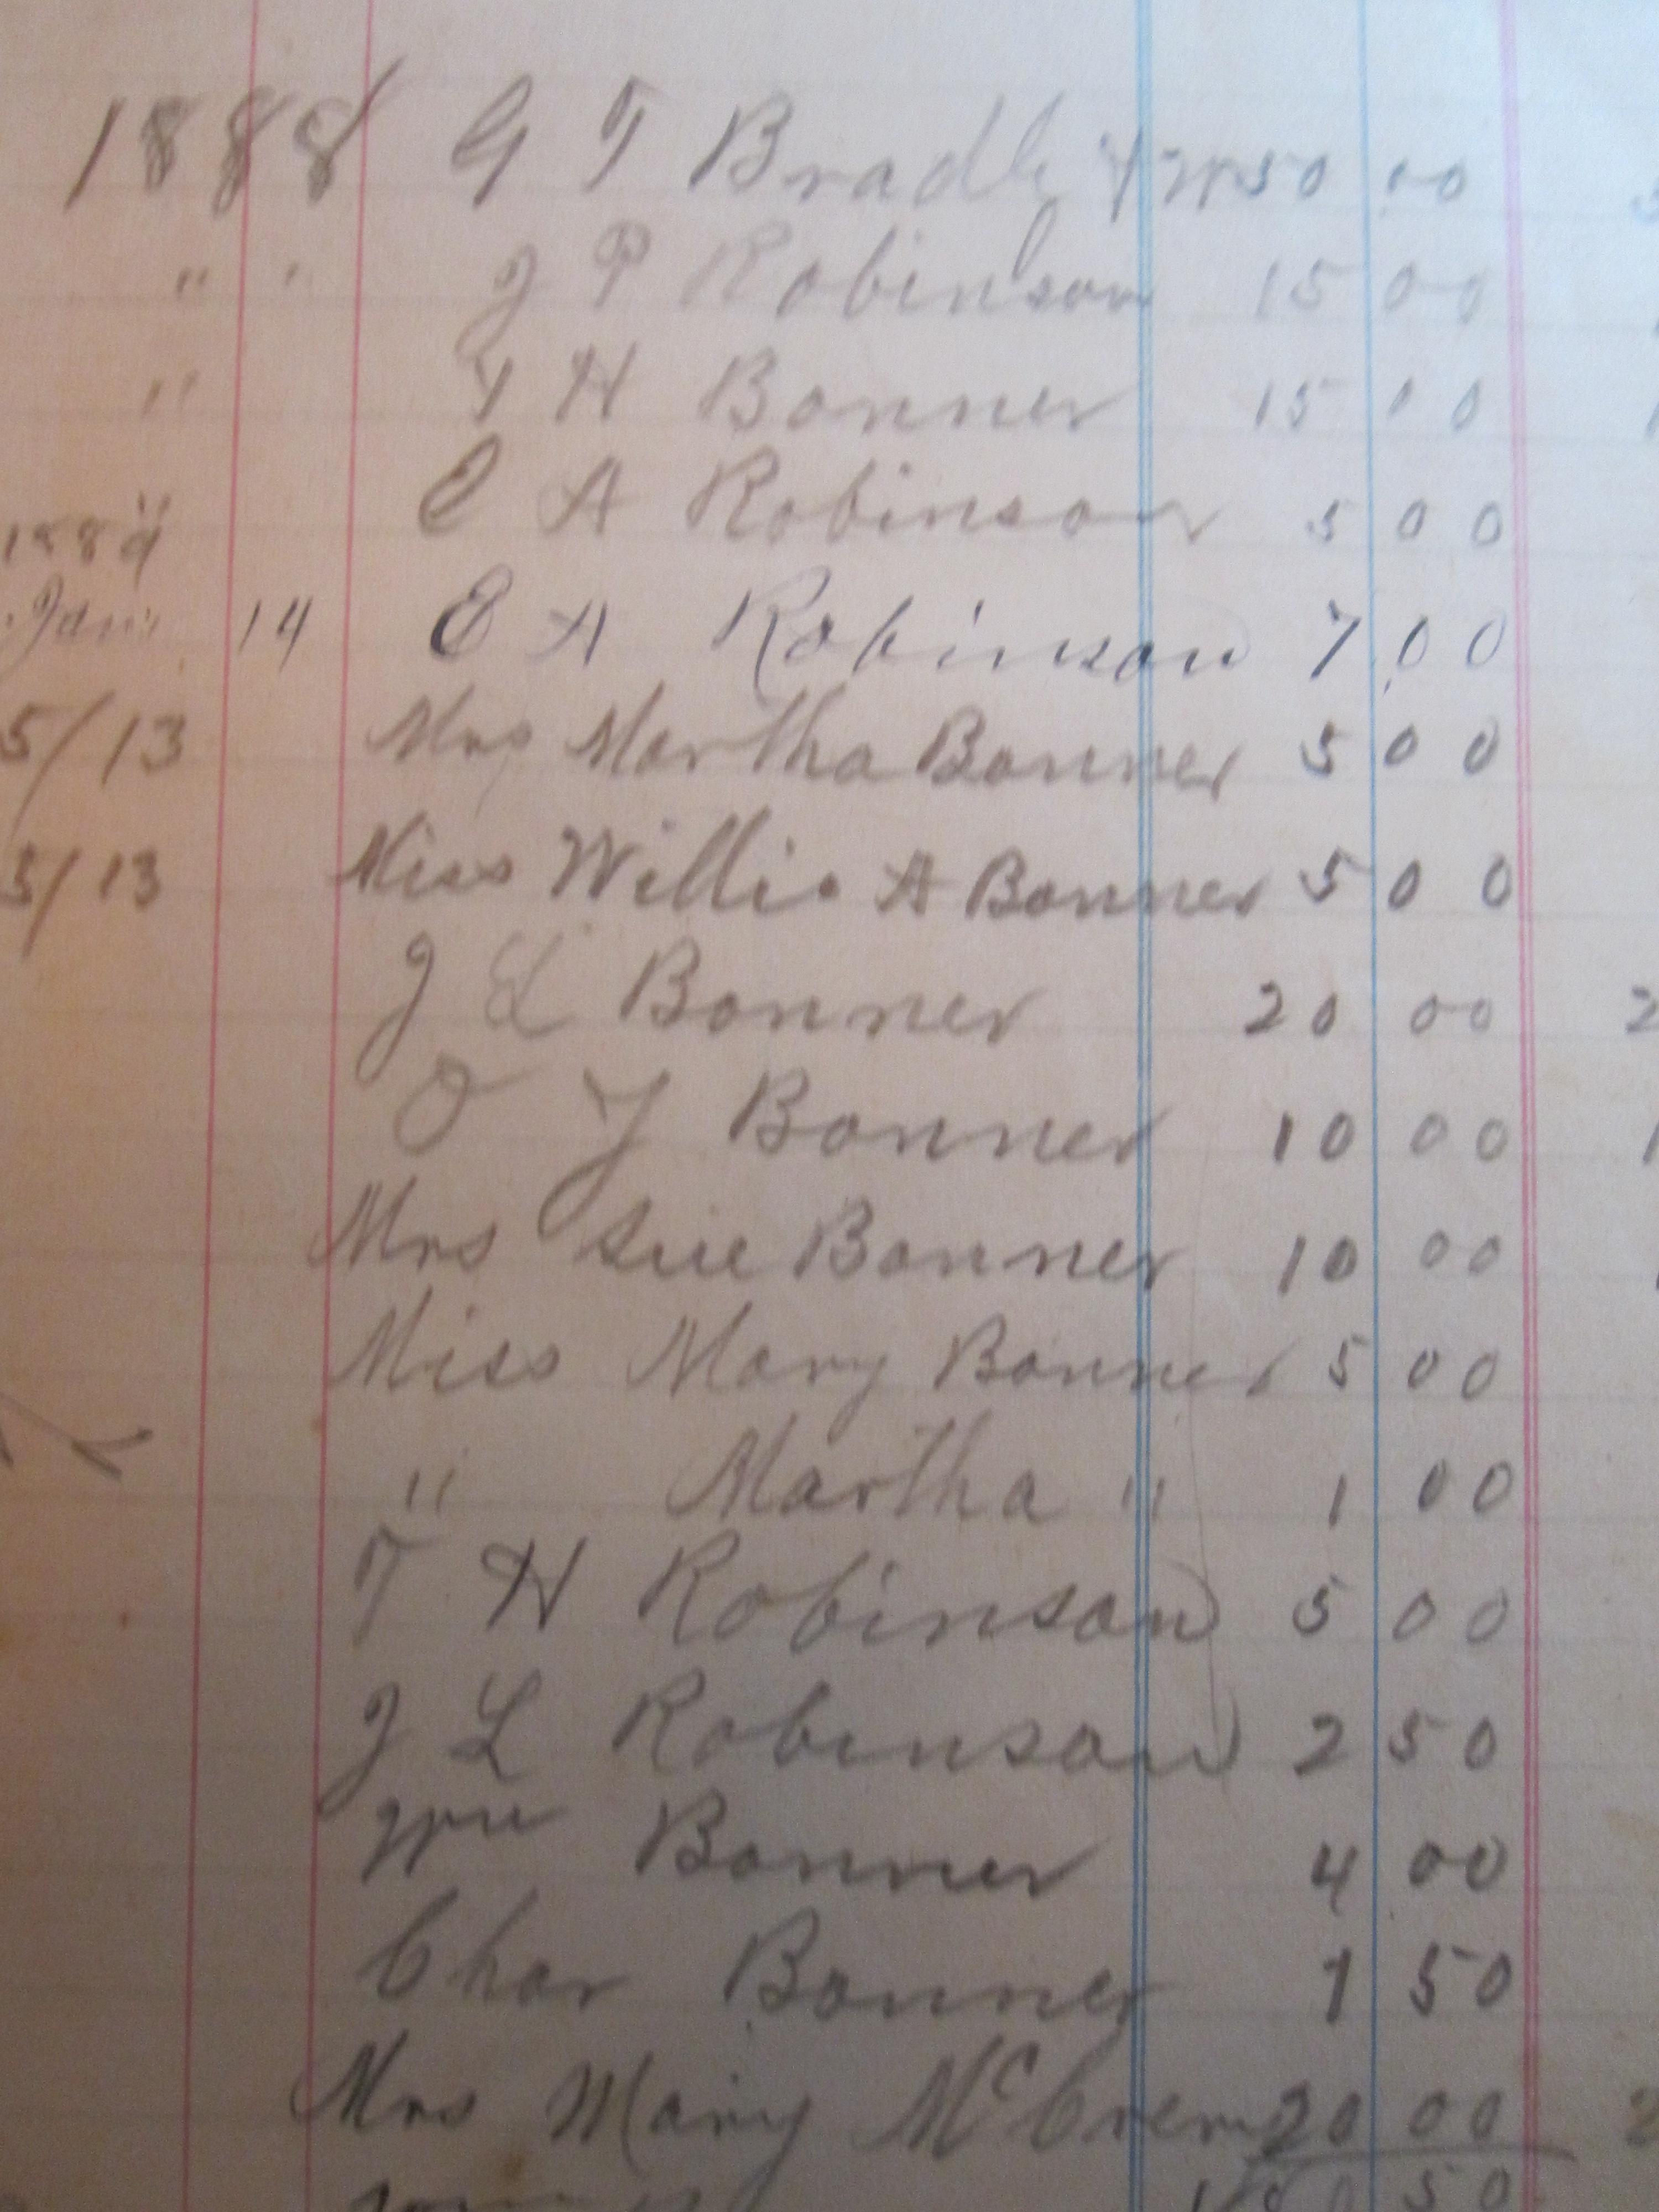 1888 G T Bradl 50 00
" " J P Robinson 15 00
" Y H Bonner 15 00
" E A Robinson 5 00
1889
Jan 14 E A Robinson 7 00
5/13 Mrs Martha Bonner 5 00
5/13 Miss Willie A Bonner 5 00
J L Bonner 20 00
O Y Bonner 10 00
Mrs Sue Bonner 10 00
Miss Mary Bonner 5 00
" Martha " 1 00
T H Robinson 5 00
J L Robinson 2 50
Wm Bonner 4 00
Char Bonner 1 50
Mrs Mary McCrem 20 00
50